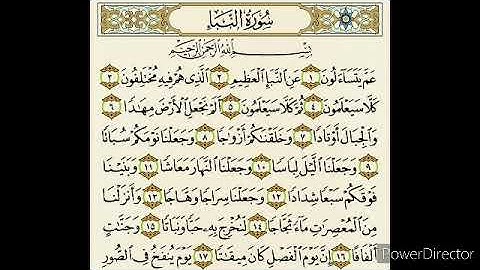 سُورَةُ النَّبَإِ
بِسْمِ اللَّهِ الرَّحْمَٰنِ الرَّحِيمِ
عَمَّ يَتَسَاءَلُونَ ١ عَنِ النَّبَإِ الْعَظِيمِ ٢ الَّذِي هُمْ فِيهِ مُخْتَلِفُونَ ٣
كَلَّا سَيَعْلَمُونَ ٤ ثُمَّ كَلَّا سَيَعْلَمُونَ ٥ أَلَمْ نَجْعَلِ الْأَرْضَ مِهَادًا ٦
وَالْجِبَالَ أَوْتَادًا ٧ وَخَلَقْنَاكُمْ أَزْوَاجًا ٨ وَجَعَلْنَا نَوْمَكُمْ سُبَاتًا
٩ وَجَعَلْنَا اللَّيْلَ لِبَاسًا ١٠ وَجَعَلْنَا النَّهَارَ مَعَاشًا ١١ وَبَنَيْنَا
فَوْقَكُمْ سَبْعًا شِدَادًا ١٢ وَجَعَلْنَا سِرَاجًا وَهَّاجًا ١٣ وَأَنزَلْنَا
مِنَ الْمُعْصِرَاتِ مَاءً ثَجَّاجًا ١٤ لِّنُخْرِجَ بِهِ حَبًّا وَنَبَاتًا ١٥ وَجَنَّاتٍ
أَلْفَافًا ١٦ إِنَّ يَوْمَ الْفَصْلِ كَانَ مِيقَاتًا ١٧ يَوْمَ يُنفَخُ فِي الصُّورِ
PowerDirector